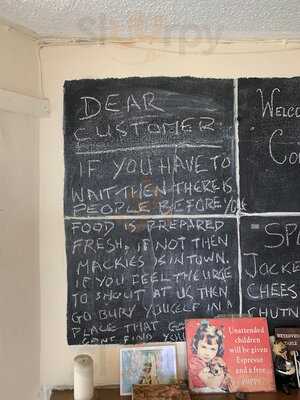 DEAR
CUSTOMER
IF YOU HAVE TO
WAIT THEN THERE IS
PEOPLE BEFORE YOU
FOOD IS PREPARED
FRESH, IF NOT THEN
MACKIES IS IN TOWN.
IF YOU FEEL THE URGE
TO SHOUT AT US THEN
GO BURY YOUSELF IN A
PLACE THAT
FIND YOU
WELCO
CO
SP
JOCKE
CHEES
CHUTN
Unattended
children will
be given an
Espresso
and a free
PUPPY